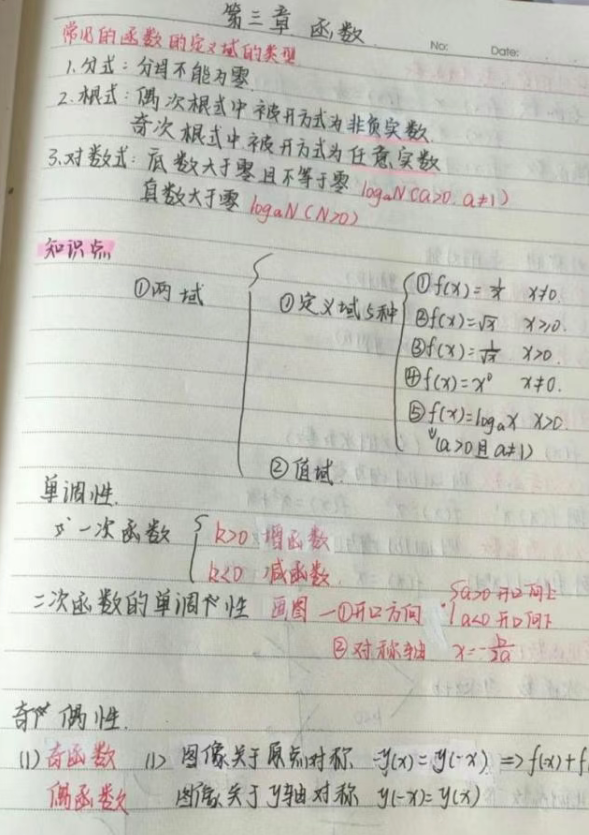 第三章 函数
No: Date:
常见的函数的定义域的类型
1.分式：分母不能为零
2.根式：偶次根式中被开方式为非负实数
奇次根式中被开方式为任意实数
3.对数式：底数大于零且不等于零 logₐN(a>0, a≠1)
真数大于零 logₐN(N>0)
知识点
①两域
①定义域5种
①f(x)=1/x x≠0
②f(x)=√x x≥0.
③f(x)=1/√x x>0
④f(x)=x⁰ x≠0.
⑤f(x)=logₐx x>0
(a>0且a≠1)
②值域
单调性.
一次函数 k>0 增函数
k<0 减函数
二次函数的单调性 画图 —①开口方向 a>0 开口向上
a<0 开口向下
②对称轴 x=-b/2a
奇偶性.
(1) 奇函数 (1) 图像关于原点对称 -y(x)=y(-x) ⇒f(x)+f
偶函数 图像关于y轴对称 y(-x)=y(x)